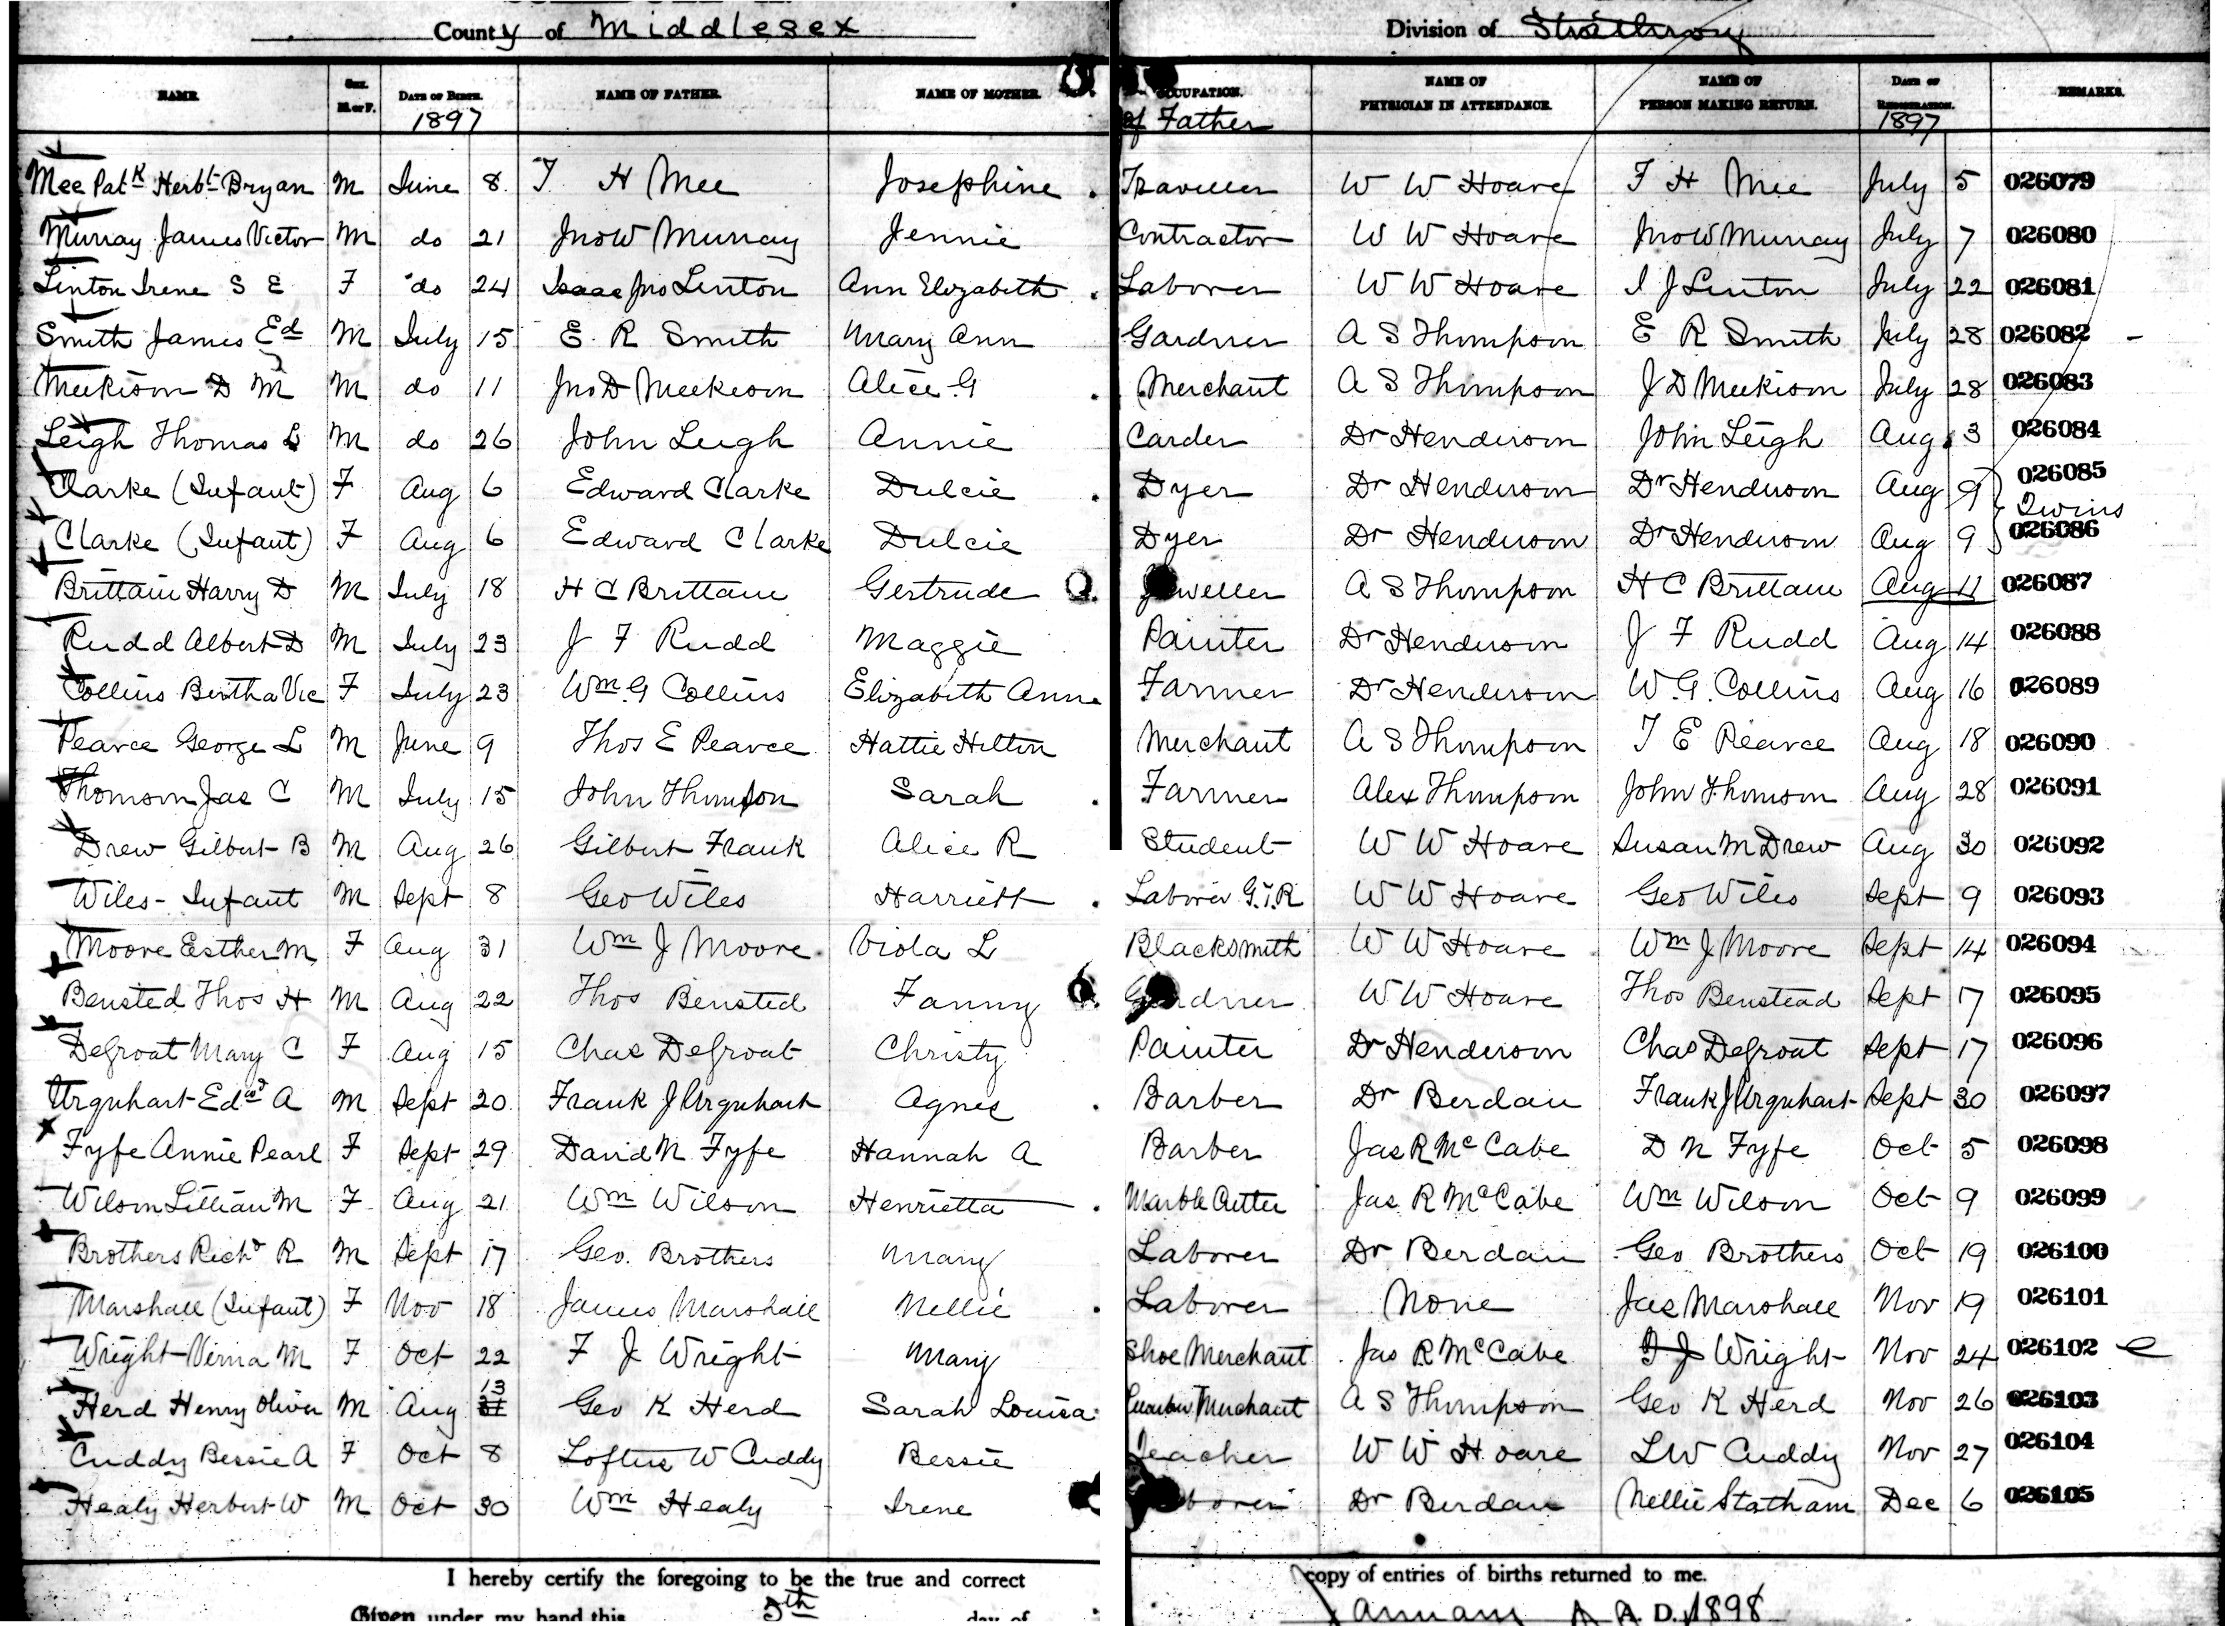 County of Middlesex Division of Strathroy
NAME. Sex. M. or F. DATE OF BIRTH. 1897 NAME OF FATHER. NAME OF MOTHER. OCCUPATION. of Father NAME OF PHYSICIAN IN ATTENDANCE. NAME OF PERSON MAKING RETURN. DATE OF REGISTRATION. 1897 REMARKS.
Mee Patk Herbt Bryan M June 8 T H Mee Josephine Traveller W W Hoare T H Mee July 5 026079
Murray James Victor M do 21 Jno W Murray Jennie Contractor W W Hoare Jno W Murray July 7 026080
Linton Irene S E F do 24 Isaac Jno Linton Ann Elizabeth Laborer W W Hoare I J Linton July 22 026081
Smith James Ed M July 15 E R Smith Mary Ann Gardner A S Thompson E R Smith July 28 026082
Meekison D M M do 11 Jno D Meekison Alice G Merchant A S Thompson J D Meekison July 28 026083
Leigh Thomas L M do 26 John Leigh Annie Carder Dr Henderson John Leigh Aug 3 026084
Clarke (Infant) F Aug 6 Edward Clarke Dulcie Dyer Dr Henderson Dr Henderson Aug 9 026085
Twins
Clarke (Infant) F Aug 6 Edward Clarke Dulcie Dyer Dr Henderson Dr Henderson Aug 9 026086
Brittain Harry D M July 18 H C Brittain Gertrude Jeweller A S Thompson H C Brittain Aug 11 026087
Rudd Albert D M July 23 J F Rudd Maggie Painter Dr Henderson J F Rudd Aug 14 026088
Collins Bertha Vic F July 23 Wm G Collins Elizabeth Anne Farmer Dr Henderson W. G. Collins Aug 16 026089
Pearce George L M June 9 Thos E Pearce Hattie Hilton Merchant A S Thompson T E Pearce Aug 18 026090
Thomson Jas C M July 15 John Thomson Sarah Farmer Alex Thompson John Thomson Aug 28 026091
Drew Gilbert B M Aug 26 Gilbert Frank Alice R Student W W Hoare Susan M Drew Aug 30 026092
Wiles - Infant M Sept 8 Geo Wiles Harriett Laborer G.T.R W W Hoare Geo Wiles Sept 9 026093
Moore Esther M F Aug 31 Wm J Moore Viola L Blacksmith W W Hoare Wm J Moore Sept 14 026094
Bensted Thos H M Aug 22 Thos Bensted Fanny Gardner W W Hoare Thos Benstead Sept 17 026095
Defroat Mary C F Aug 15 Chas Defroat Christy Painter Dr Henderson Chas Defroat Sept 17 026096
Urquhart Edwd A M Sept 20 Frank J Urquhart Agnes Barber Dr Berdan Frank J Urquhart Sept 30 026097
Fyfe Annie Pearl F Sept 29 David N Fyfe Hannah A Barber Jas R McCabe D N Fyfe Oct 5 026098
Wilson Lillian M F Aug 21 Wm Wilson Henrietta Marble Cutter Jas R McCabe Wm Wilson Oct 9 026099
Brothers Richd R M Sept 17 Geo. Brothers Mary Laborer Dr Berdan Geo Brothers Oct 19 026100
Marshall (Infant) F Nov 18 James Marshall Nellie Laborer None Jas Marshall Nov 19 026101
Wright Verna M F Oct 22 F J Wright Mary Shoe Merchant Jas R McCabe F J Wright Nov 24 026102
Herd Henry Oliver M Aug 13 31 Geo K Herd Sarah Louisa Lumber Merchant A S Thompson Geo K Herd Nov 26 026103
Cuddy Bessie A F Oct 8 Loftus W Cuddy Bessie Teacher W W Hoare L W Cuddy Nov 27 026104
Healy Herbert W M Oct 30 Wm Healy Irene Laborer Dr Berdan Nellie Statham Dec 6 026105
I hereby certify the foregoing to be the true and correct copy of entries of births returned to me.
Given under my hand this 5th day of January A. D. 1898